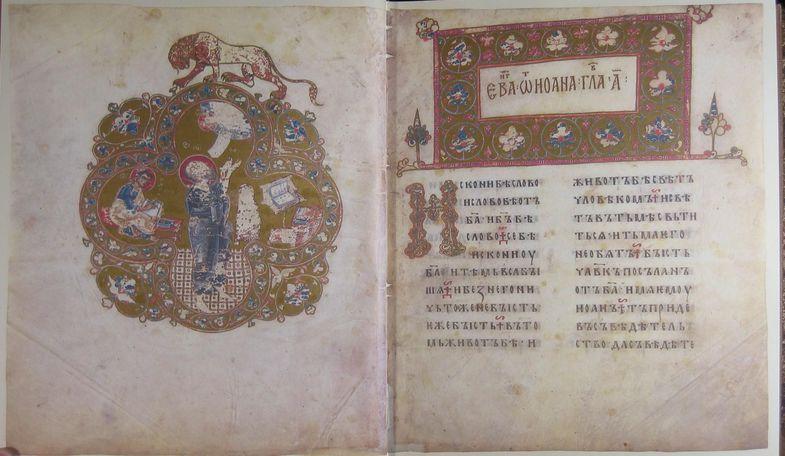 ЕВА҃ ѾИОАНА · ГЛА · А҃ ·
ИСКОНИБѢСЛОВО
ИСЛОВОБѢОТЪ
БА҃ · ИБЪ҃БѢ
СЛОВО СЕБѢ
ИСКОНИОУ
БА҃ ИТѢМЬВСАБЫ
ШѦ ИБЕЗНЕГОНИ
ЧЬТОЖЕНЕБЫСТЬ
ИЖЕБЫСТЬ ВЪТО
МЬЖИВОТЪБѢ · И
ЖИВОТЪБѢСВѢТ
ЧЛОВѢКОМЪ ИСВѢ
ТЪВЪТЬМѢСВЬТИ
ТЬСѦ · ИТЬМАѤГО
НЕОБѦТЪ БЫСТЬ
ЧЛ҃ВКЪПОСЪЛАНЪ
ОТЪБА҃ · ИМѦѤМОУ
ИОАНЪ ТЪПРИДЕ
ВЪСЪВѢДѢТЕЛЬ
СТВО · ДАСЪВѢДѢТЕ